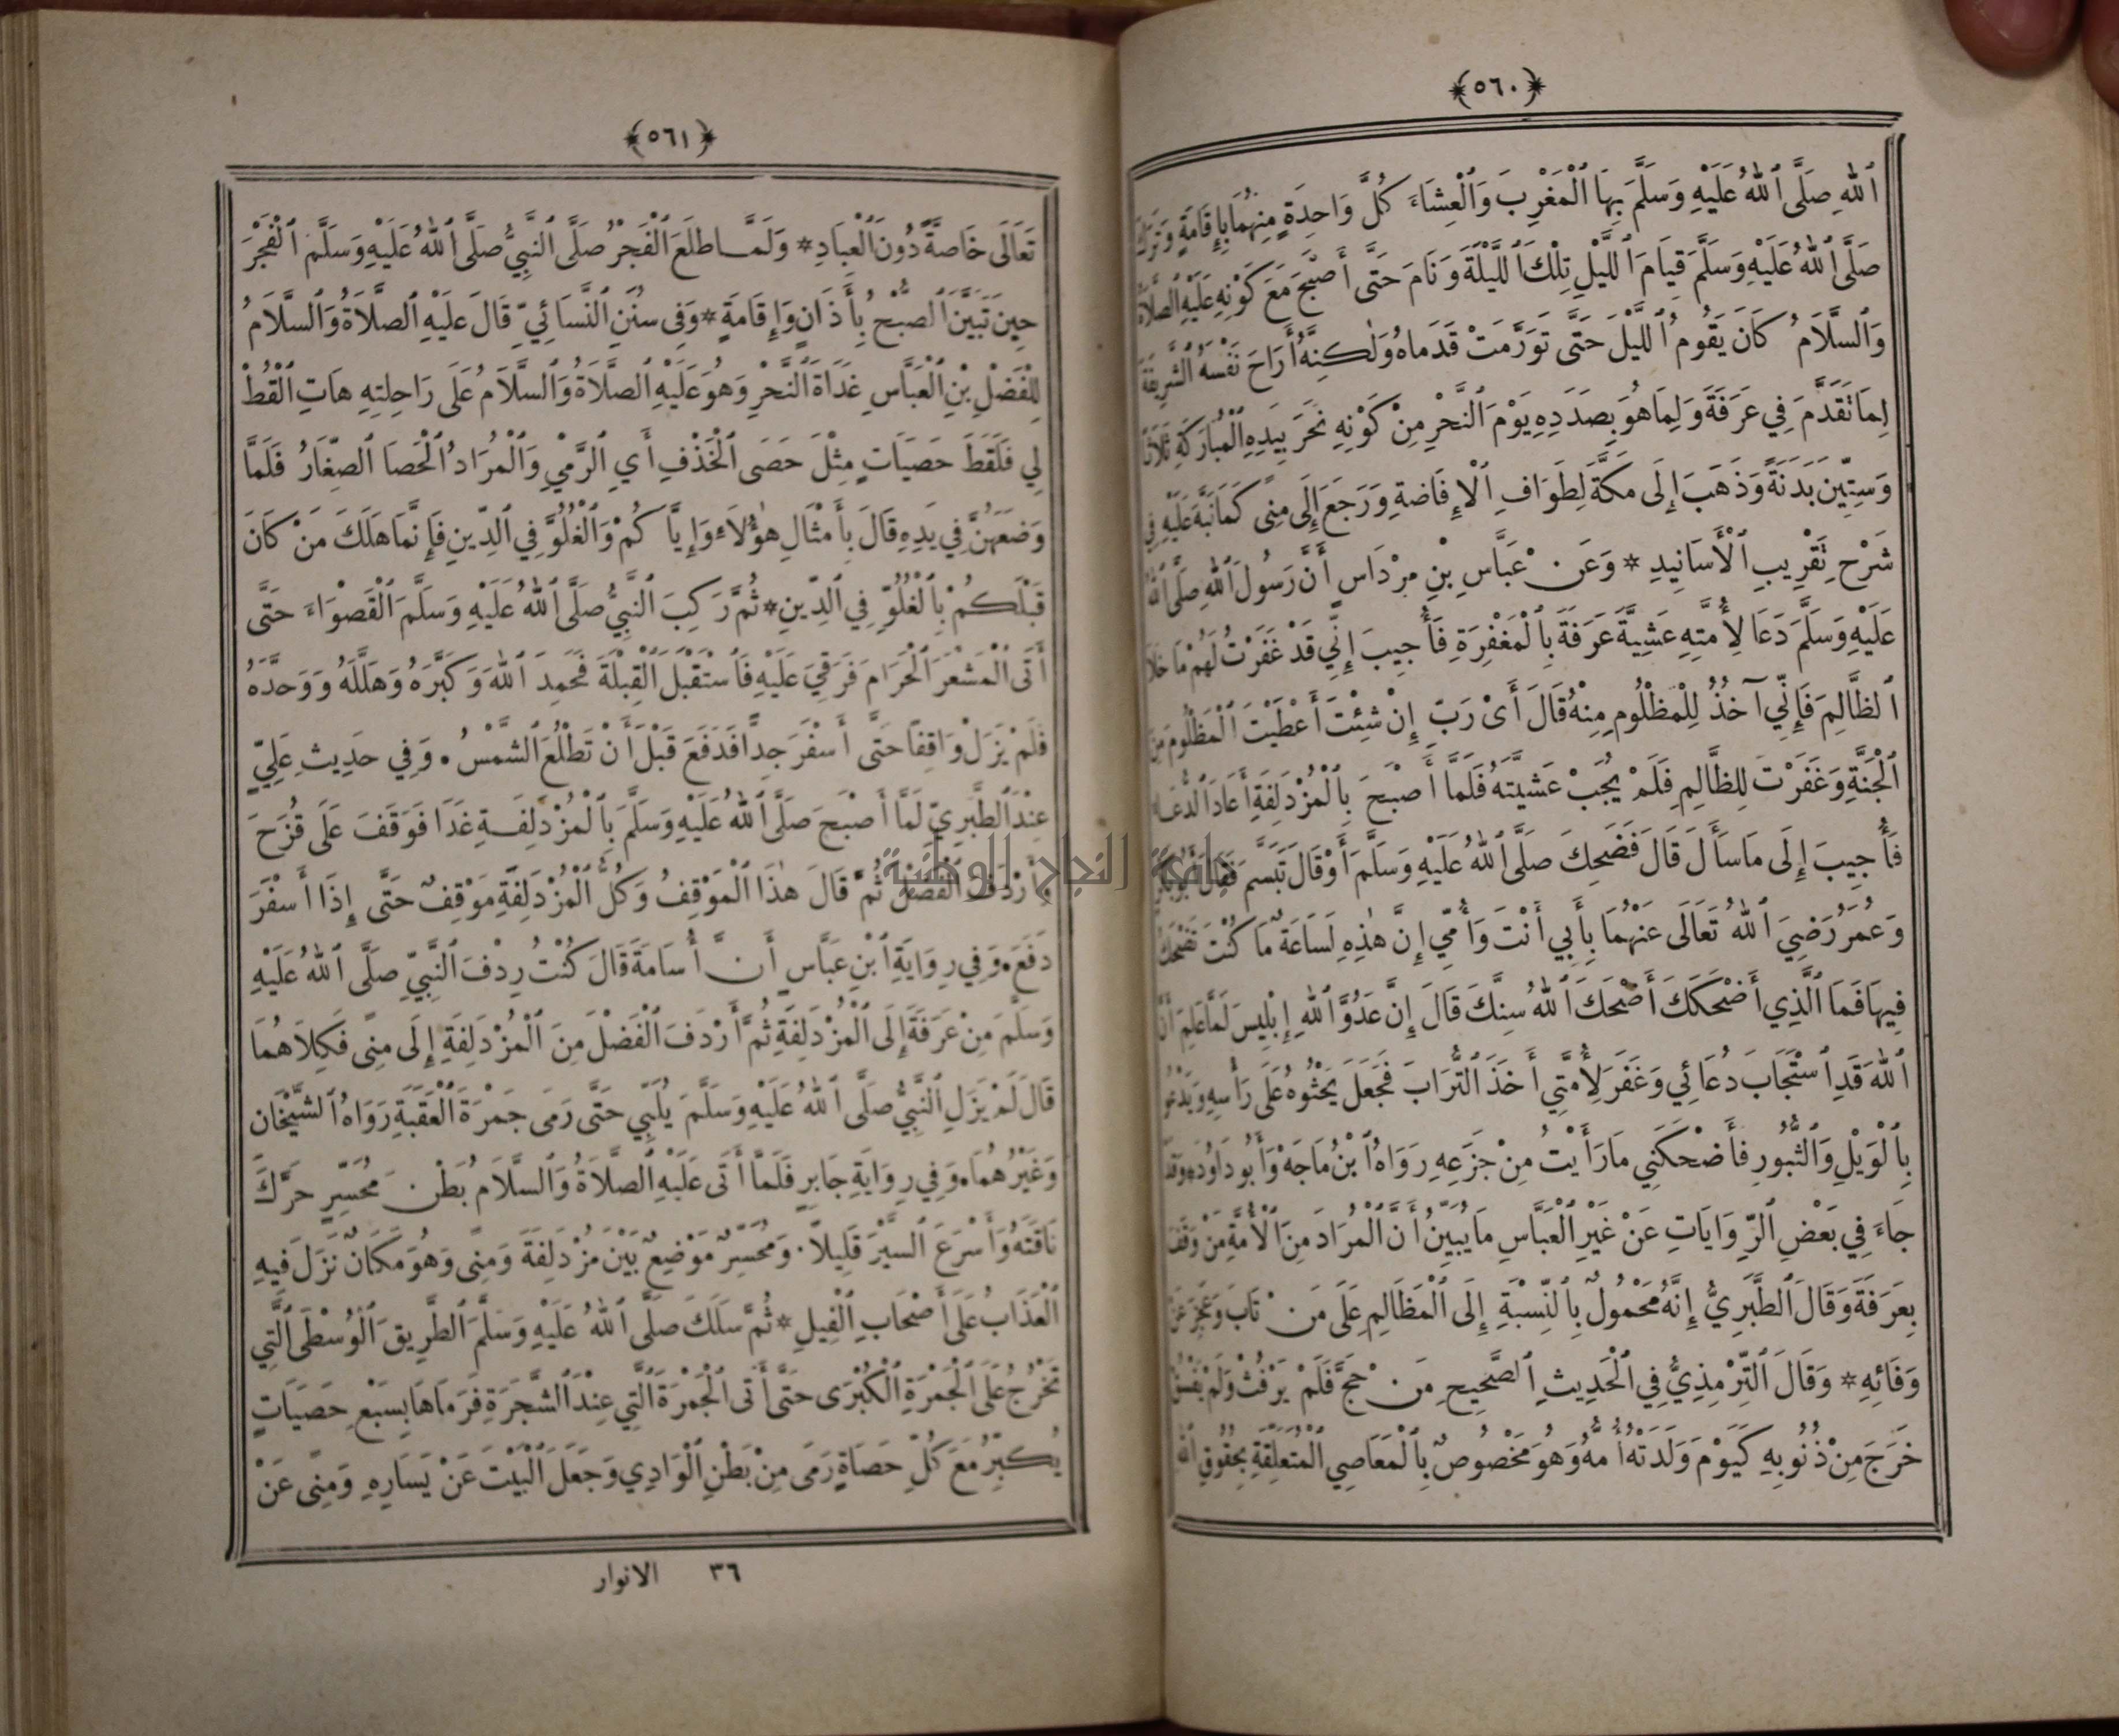 ﴿٥٦٠﴾
ٱللهِ صَلَّى ٱللهُ عَلَيْهِ وَسَلَّمَ بِهَا ٱلْمَغْرِبَ وَٱلْعِشَاءَ كُلَّ وَاحِدَةٍ مِنْهُمَا بِإِقَامَةٍ وَتَرَكَ
صَلَّى ٱللهُ عَلَيْهِ وَسَلَّمَ قِيَامَ ٱللَّيْلِ تِلْكَ ٱللَّيْلَةَ وَنَامَ حَتَّى أَصْبَحَ مَعَ كَوْنِهِ عَلَيْهِ ٱلصَّلَاةُ
وَٱلسَّلَامُ كَانَ يَقُومُ ٱللَّيْلَ حَتَّى تَوَرَّمَتْ قَدَمَاهُ وَلٰكِنَّهُ أَرَاحَ نَفْسَهُ ٱلشَّرِيفَةَ
لِمَا تَقَدَّمَ فِي عَرَفَةَ وَلِمَا هُوَ بِصَدَدِهِ يَوْمَ ٱلنَّحْرِ مِنْ كَوْنِهِ نَحَرَ بِيَدِهِ ٱلْمُبَارَكَةِ ثَلَاثًا
وَسِتِّينَ بَدَنَةً وَذَهَبَ إِلَى مَكَّةَ لِطَوَافِ ٱلْإِفَاضَةِ وَرَجَعَ إِلَى مِنًى كَمَا نَبَّهَ عَلَيْهِ فِي
شَرْحِ تَقْرِيبِ ٱلْأَسَانِيدِ * وَعَنْ عَبَّاسِ بْنِ مِرْدَاسٍ أَنَّ رَسُولَ ٱللهِ صَلَّى ٱللهُ
عَلَيْهِ وَسَلَّمَ دَعَا لِأُمَّتِهِ عَشِيَّةَ عَرَفَةَ بِٱلْمَغْفِرَةِ فَأُجِيبَ إِنِّي قَدْ غَفَرْتُ لَهُمْ مَا خَلَا
ٱلظَّالِمَ فَإِنِّي آخُذُ لِلْمَظْلُومِ مِنْهُ قَالَ أَيْ رَبِّ إِنْ شِئْتَ أَعْطَيْتَ ٱلْمَظْلُومَ مِنَ
ٱلْجَنَّةِ وَغَفَرْتَ لِلظَّالِمِ فَلَمْ يُجَبْ عَشِيَّتَهُ فَلَمَّا أَصْبَحَ بِٱلْمُزْدَلِفَةِ أَعَادَ ٱلدُّعَاءَ
فَأُجِيبَ إِلَى مَا سَأَلَ قَالَ فَضَحِكَ صَلَّى ٱللهُ عَلَيْهِ وَسَلَّمَ أَوْ قَالَ تَبَسَّمَ فَقَالَ أَبُو بَكْرٍ
وَعُمَرُ رَضِيَ ٱللهُ تَعَالَى عَنْهُمَا بِأَبِي أَنْتَ وَأُمِّي إِنَّ هٰذِهِ لَسَاعَةٌ مَا كُنْتَ تَضْحَكُ
فِيهَا فَمَا ٱلَّذِي أَضْحَكَكَ أَضْحَكَ ٱللهُ سِنَّكَ قَالَ إِنَّ عَدُوَّ ٱللهِ إِبْلِيسَ لَمَّا عَلِمَ أَنَّ
ٱللهَ قَدِ ٱسْتَجَابَ دُعَائِي وَغَفَرَ لِأُمَّتِي أَخَذَ ٱلتُّرَابَ فَجَعَلَ يَحْثُوهُ عَلَى رَأْسِهِ وَيَدْعُو
بِٱلْوَيْلِ وَٱلثُّبُورِ فَأَضْحَكَنِي مَا رَأَيْتُ مِنْ جَزَعِهِ رَوَاهُ ٱبْنُ مَاجَهْ وَأَبُو دَاوُدَ وَقَدْ
جَاءَ فِي بَعْضِ ٱلرِّوَايَاتِ عَنْ غَيْرِ ٱلْعَبَّاسِ مَا يُبَيِّنُ أَنَّ ٱلْمُرَادَ مِنَ ٱلْأُمَّةِ مَنْ وَقَفَ
بِعَرَفَةَ وَقَالَ ٱلطَّبَرِيُّ إِنَّهُ مَحْمُولٌ بِٱلنِّسْبَةِ إِلَى ٱلْمَظَالِمِ عَلَى مَنْ تَابَ وَعَجَزَ عَنْ
وَفَائِهِ * وَقَالَ ٱلتِّرْمِذِيُّ فِي ٱلْحَدِيثِ ٱلصَّحِيحِ مَنْ حَجَّ فَلَمْ يَرْفُثْ وَلَمْ يَفْسُقْ
خَرَجَ مِنْ ذُنُوبِهِ كَيَوْمَ وَلَدَتْهُ أُمُّهُ وَهُوَ مَخْصُوصٌ بِٱلْمَعَاصِي ٱلْمُتَعَلِّقَةِ بِحُقُوقِ ٱللهِ
﴿٥٦١﴾
تَعَالَى خَاصَّةً دُونَ ٱلْعِبَادِ * وَلَمَّا طَلَعَ ٱلْفَجْرُ صَلَّى ٱلنَّبِيُّ صَلَّى ٱللهُ عَلَيْهِ وَسَلَّمَ ٱلْفَجْرَ
حِينَ تَبَيَّنَ ٱلصُّبْحُ بِأَذَانٍ وَإِقَامَةٍ * وَفِي سُنَنِ ٱلنَّسَائِيِّ قَالَ عَلَيْهِ ٱلصَّلَاةُ وَٱلسَّلَامُ
لِلْفَضْلِ بْنِ ٱلْعَبَّاسِ غَدَاةَ ٱلنَّحْرِ وَهُوَ عَلَيْهِ ٱلصَّلَاةُ وَٱلسَّلَامُ عَلَى رَاحِلَتِهِ هَاتِ ٱلْقُطْ
لِي فَلَقَطَ حَصَيَاتٍ مِثْلَ حَصَى ٱلْخَذْفِ أَيِ ٱلرَّمْيِ وَٱلْمُرَادُ ٱلْحَصَا ٱلصِّغَارُ فَلَمَّا
وَضَعَهُنَّ فِي يَدِهِ قَالَ بِأَمْثَالِ هٰؤُلَاءِ وَإِيَّاكُمْ وَٱلْغُلُوَّ فِي ٱلدِّينِ فَإِنَّمَا هَلَكَ مَنْ كَانَ
قَبْلَكُمْ بِٱلْغُلُوِّ فِي ٱلدِّينِ * ثُمَّ رَكِبَ ٱلنَّبِيُّ صَلَّى ٱللهُ عَلَيْهِ وَسَلَّمَ ٱلْقَصْوَاءَ حَتَّى
أَتَى ٱلْمَشْعَرَ ٱلْحَرَامَ فَرَقِيَ عَلَيْهِ فَٱسْتَقْبَلَ ٱلْقِبْلَةَ فَحَمِدَ ٱللهَ وَكَبَّرَهُ وَهَلَّلَهُ وَوَحَّدَهُ
فَلَمْ يَزَلْ وَاقِفًا حَتَّى أَسْفَرَ جِدًّا فَدَفَعَ قَبْلَ أَنْ تَطْلُعَ ٱلشَّمْسُ . وَفِي حَدِيثِ عَلِيٍّ
عِنْدَ ٱلطَّبَرِيِّ لَمَّا أَصْبَحَ صَلَّى ٱللهُ عَلَيْهِ وَسَلَّمَ بِٱلْمُزْدَلِفَةِ غَدَا فَوَقَفَ عَلَى قُزَحَ
وَأَرْدَفَ ٱلْفَضْلَ ثُمَّ قَالَ هٰذَا ٱلْمَوْقِفُ وَكُلُّ ٱلْمُزْدَلِفَةِ مَوْقِفٌ حَتَّى إِذَا أَسْفَرَ
دَفَعَ . وَفِي رِوَايَةِ ٱبْنِ عَبَّاسٍ أَنَّ أُسَامَةَ قَالَ كُنْتُ رِدْفَ ٱلنَّبِيِّ صَلَّى ٱللهُ عَلَيْهِ
وَسَلَّمَ مِنْ عَرَفَةَ إِلَى ٱلْمُزْدَلِفَةِ ثُمَّ أَرْدَفَ ٱلْفَضْلَ مِنَ ٱلْمُزْدَلِفَةِ إِلَى مِنًى فَكِلَاهُمَا
قَالَ لَمْ يَزَلِ ٱلنَّبِيُّ صَلَّى ٱللهُ عَلَيْهِ وَسَلَّمَ يُلَبِّي حَتَّى رَمَى جَمْرَةَ ٱلْعَقَبَةِ رَوَاهُ ٱلشَّيْخَانِ
وَغَيْرُهُمَا . وَفِي رِوَايَةِ جَابِرٍ فَلَمَّا أَتَى عَلَيْهِ ٱلصَّلَاةُ وَٱلسَّلَامُ بَطْنَ مُحَسِّرٍ حَرَّكَ
نَاقَتَهُ وَأَسْرَعَ ٱلسَّيْرَ قَلِيلًا . وَمُحَسِّرٌ مَوْضِعٌ بَيْنَ مُزْدَلِفَةَ وَمِنًى وَهُوَ مَكَانٌ نَزَلَ فِيهِ
ٱلْعَذَابُ عَلَى أَصْحَابِ ٱلْفِيلِ * ثُمَّ سَلَكَ صَلَّى ٱللهُ عَلَيْهِ وَسَلَّمَ ٱلطَّرِيقَ ٱلْوُسْطَى ٱلَّتِي
تَخْرُجُ عَلَى ٱلْجَمْرَةِ ٱلْكُبْرَى حَتَّى أَتَى ٱلْجَمْرَةَ ٱلَّتِي عِنْدَ ٱلشَّجَرَةِ فَرَمَاهَا بِسَبْعِ حَصَيَاتٍ
يُكَبِّرُ مَعَ كُلِّ حَصَاةٍ رَمَى مِنْ بَطْنِ ٱلْوَادِي وَجَعَلَ ٱلْبَيْتَ عَنْ يَسَارِهِ وَمِنًى عَنْ
٣٦ الانوار
جامعة النجاح الوطنية